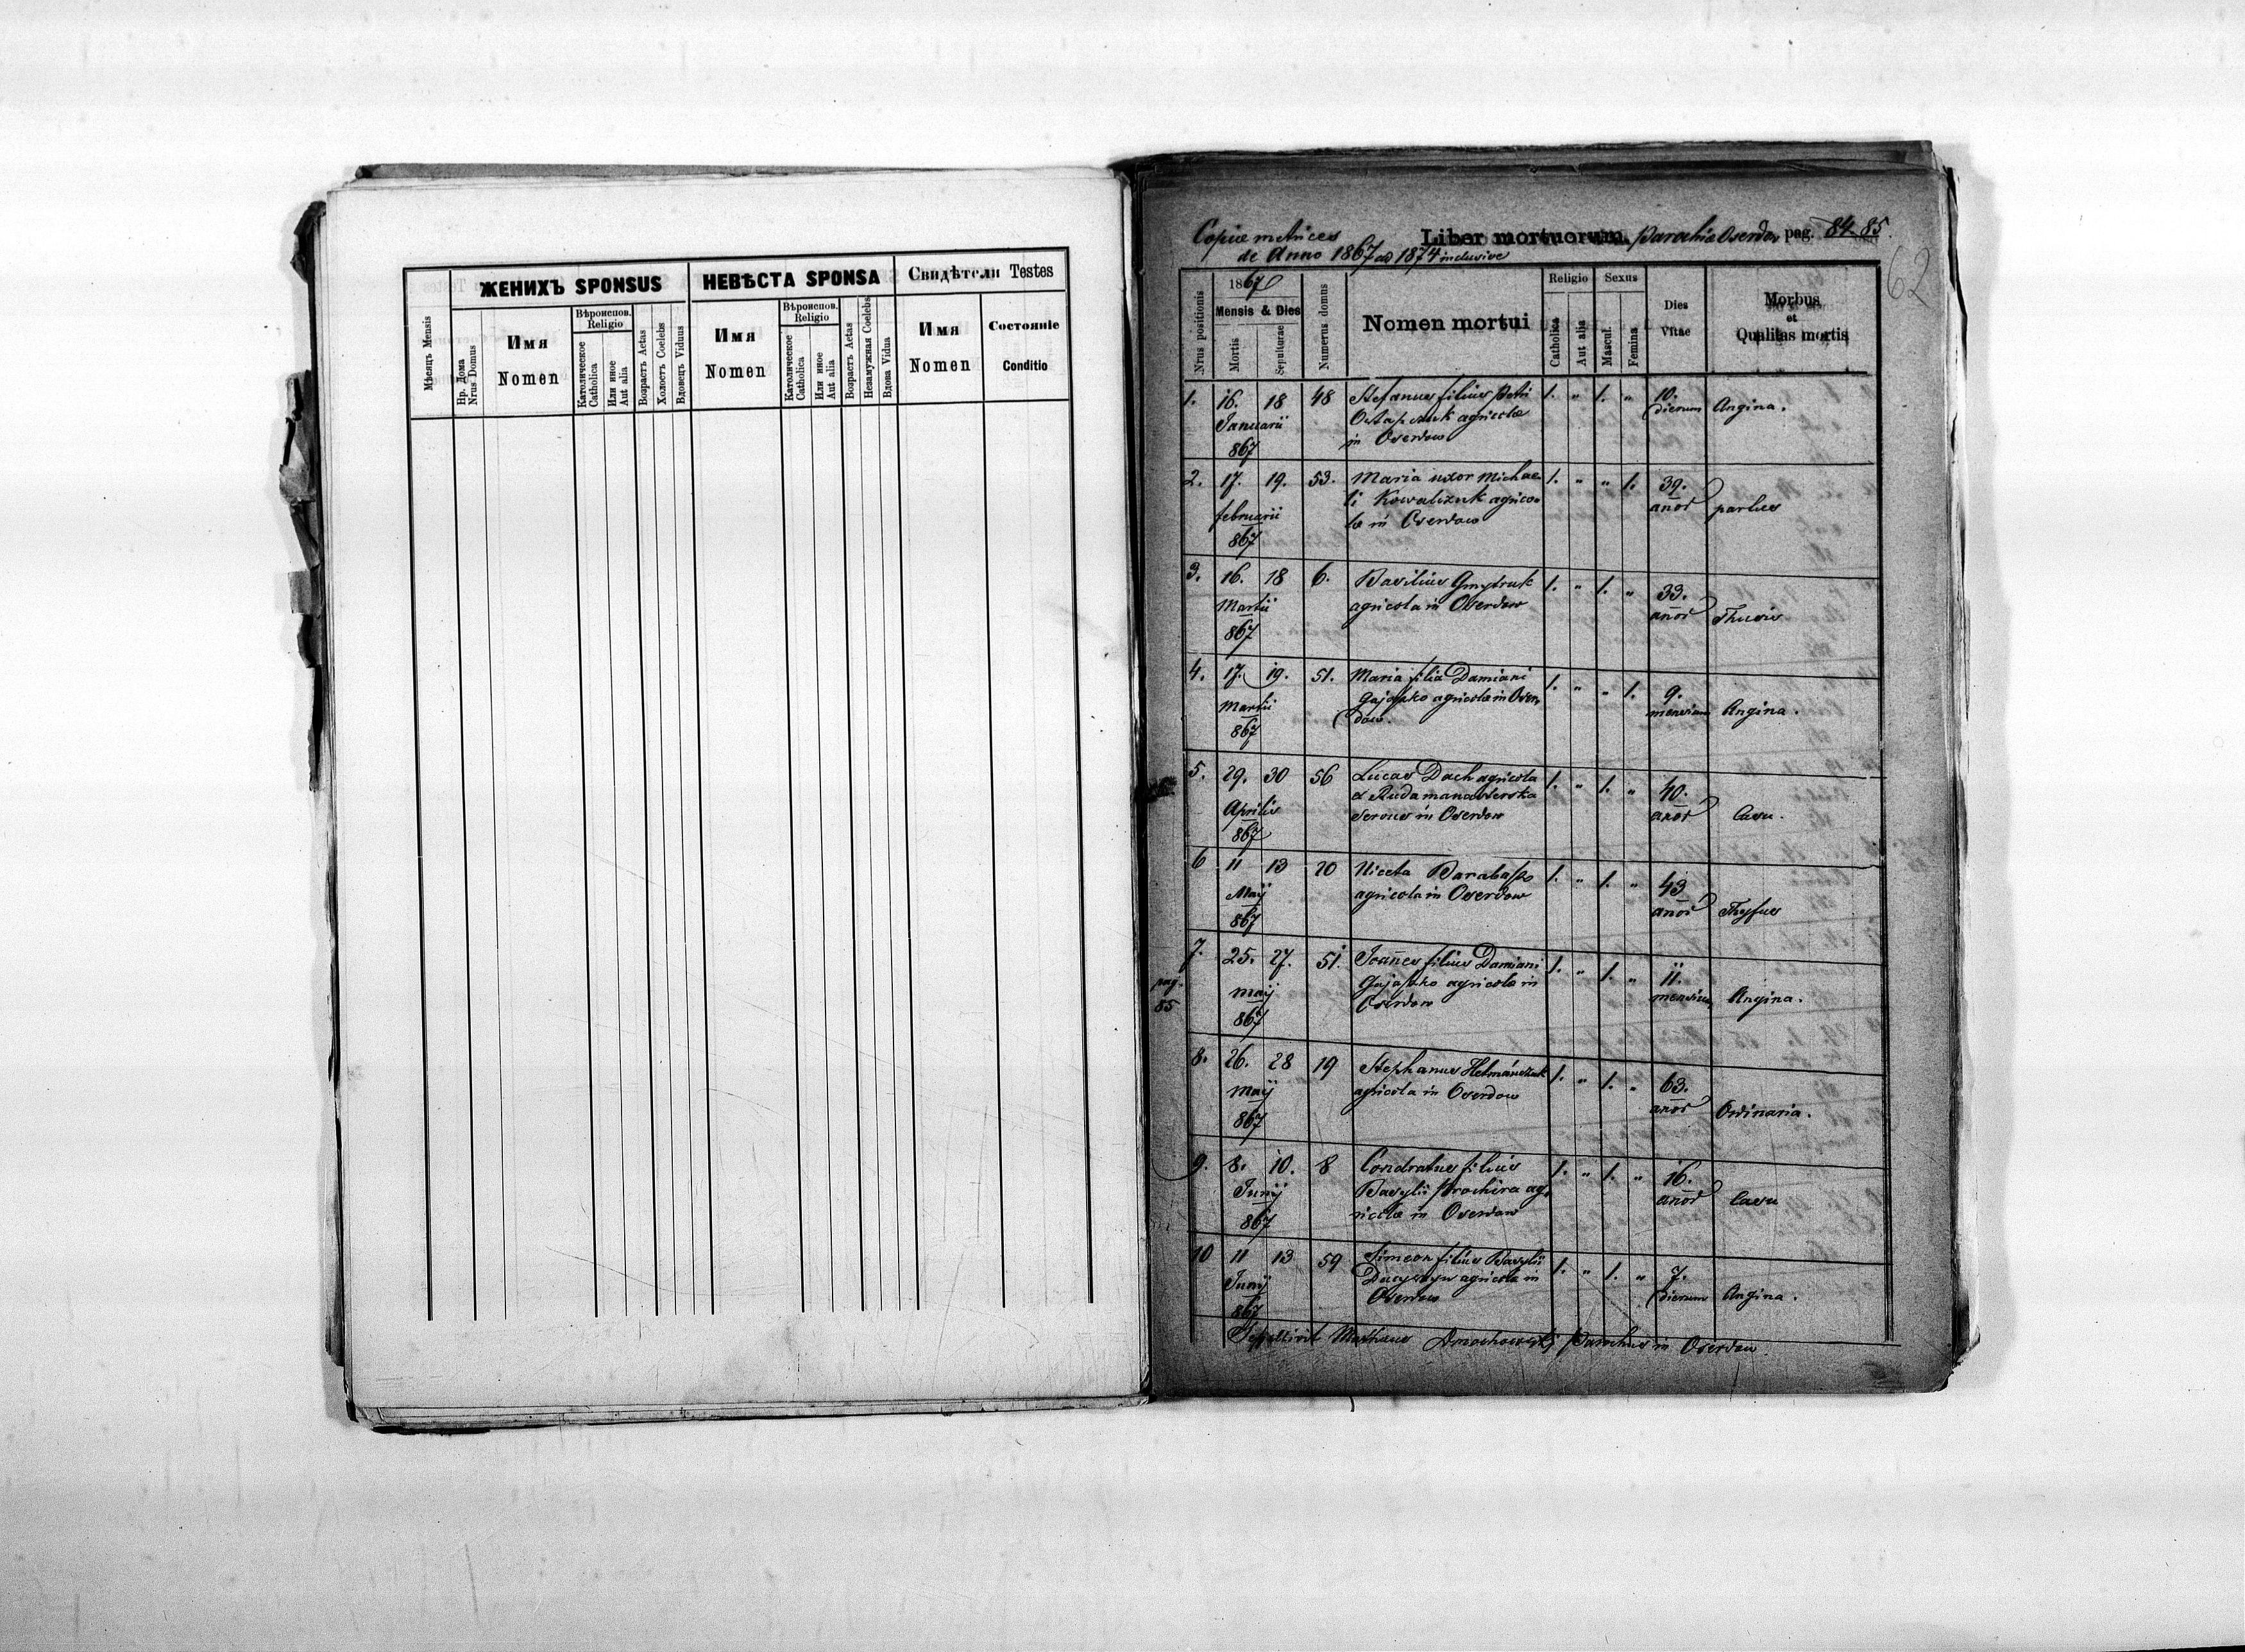 ЖЕНИХЪ SPONSUS
НЕВѢСТА SPONSA
Свидѣтели Testes
Мѣсяцъ Mensis
Нр. Дома
Nrus Domus
Имя
Nomen
Вѣроиспов.
Religio
Католическое
Catholica
Или иное
Aut alia
Возрастъ Aetas
Холостъ Coelebs
Вдовецъ Viduus
Имя
Nomen
Вѣроиспов.
Religio
Католическое
Catholica
Или иное
Aut alia
Возрастъ Aetas
Незамужная Coelebs
Вдова Vidua
Имя
Nomen
Состояніе
Conditio
Copiae metrices
de Anno 1867 ad 1874 inclusive
Liber mortuorum Parochiae Oserdow pag. 84-85.
62
Nrus positionis
1867
Mensis & Dies
Mortis
Sepulturae
Numerus domus
Nomen mortui
Religio
Catholica
Aut alia
Sexus
Mascul.
Femina
Dies
Vitae
Morbus
et
Qualitas mortis
1. 16. 18 48 Stefanus filius Petri 1. " 1. " 10.
Januarii Ostapczuk agricolae dierum Angina.
867 in Oserdow
2. 17. 19. 53. Maria uxor Michae- 1. " " 1. 39.
februarii li Kowalczuk agrico- anor partus
867 lae in Oserdow
3. 16. 18 6. Basilius Gmytruk 1. " 1. " 33.
Martii agricola in Oserdow anor Thusis
867
4. 17. 19. 51. Maria filia Damiani 1. " " 1. 9.
Martii agricolae in Oser- mensium Angina.
867 dow.
5. 29. 30 56 Lucas Dach agricola 1. " 1. " 40.
Aprilis anor Casu.
867 in Oserdow
6 11 13 20 Niceta 1. " 1. " 43
Maij agricola in Oserdow anor Thyfus
867
7. 25. 27. 51. Joannes filius Damiani 1. " 1. " 11.
pag. 85
maij agricolae in mensium Angina.
867 Oserdow
8. 26. 28 19 Stephanus Hetmańczuk 1. " 1. " 63.
maij agricola in Oserdow anor Ordinaria.
867
9. 8. 10. 8 Condratus filius 1. " 1. " 16.
Junij Basylii Prochira ag- anor Casu
867 ricolae in Oserdow
10 11 13 59 Simeon filius Basylii 1. " 1. " 7.
Junij agricolae in dierum Angina.
867 Oserdow
Sepelivit Parochus in Oserdow.